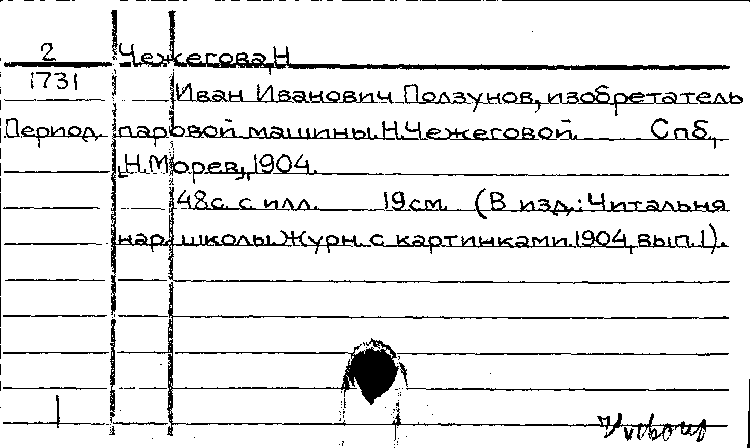 2 Чежегова, Н
1731
Иван Иванович Ползунов, изобретатель
Период. паровой машины. Н. Чежеговой. Спб.,
Н. Морев, 1904.
48с. с илл. 19см. (В изд.: Читальня
нар. школы. Журн. с картинками. 1904, вып. 1).